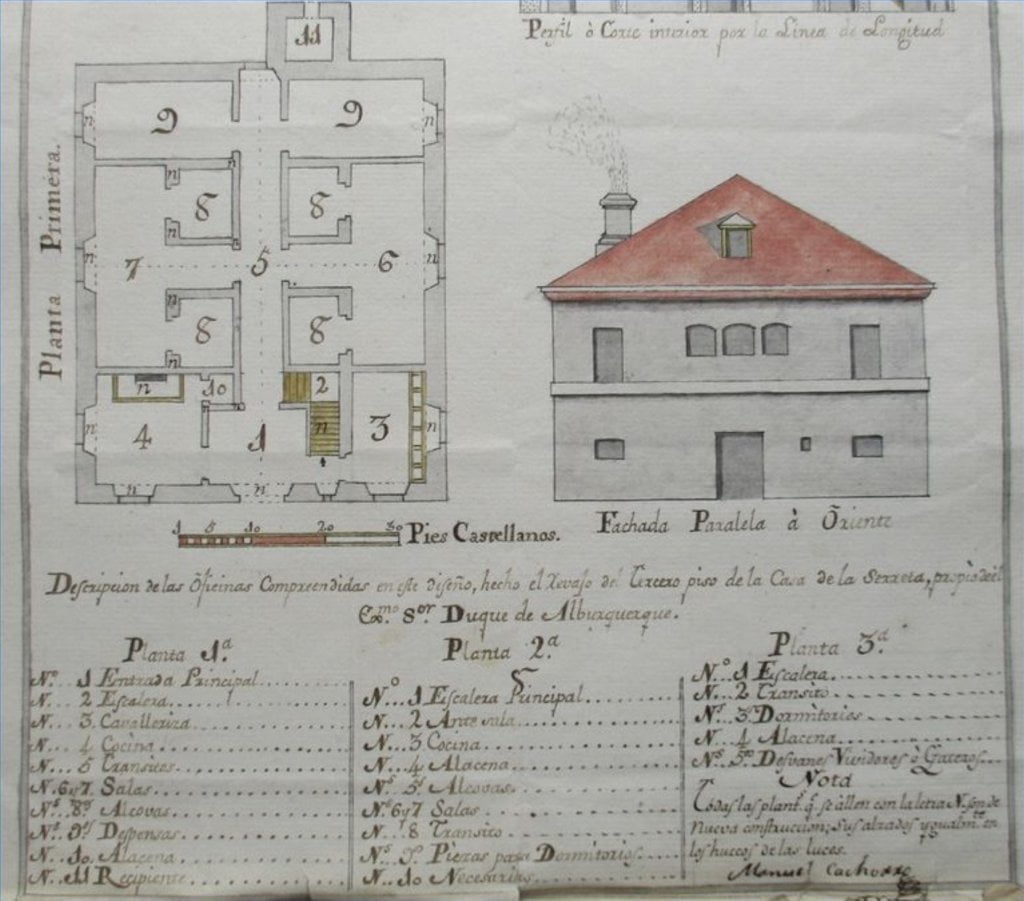 Perfil ò Corte interior por la Linea de Longitud
Planta Primera.
11
9 9
n n
n n
8 8
n
7 5 6
n n
n
8 8
n
n 10 2
n 4 1 n 3 n
n n
1 5 10 20 30 Pies Castellanos.
Fachada Paralela à Oriente
Descripcion de las Oficinas Compreendidas en este diseño, hecho el del Tercero piso de la Casa de la Serreta, propio de él
Exmo. Sor. Duque de Alburquerque.
Planta 1.a
No... 1 Entrada Principal
N... 2 Escalera
N... 3 Cavalleriza
N... 4 Cocina
N... 5 Transitos
N. 6 y 7. Salas
Ns. 8s. Alcovas
Ns. 9s. Despensas
N... 10. Alacena
N... 11 Recipiente
Planta 2.a
No... 1 Escalera Principal
N... 2 Ante sala
N... 3 Cocina
N... 4 Alacena
Ns. 5s. Alcovas
Ns 6 y 7 Salas
N... 8 Transito
Ns. 9s. Piezas para Dormitorios
N... 10 Necesarias
Planta 3.a
N.o 1 Escalera
N... 2 Transito
Ns. 3s. Dormitorios
N... 4 Alacena
Ns. 5s. Desvanes Vivideros ò Gateros
Nota
Todas las plant.s q. se àllen con la letra N. son de
Nueva construccion; sus alzados y gualm. en
los huecos de las luces.
Manuel Cachorro